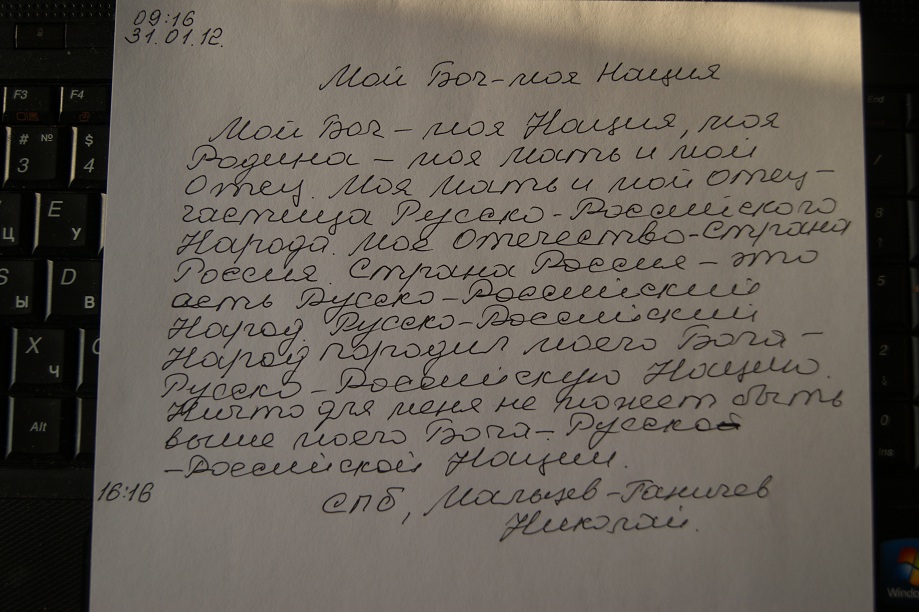 09:16
31.01.12.
Мой Бог – моя Нация
Мой Бог – моя Нация, моя
Родина – моя мать и мой
отец. Моя мать и мой отец –
частица Русско-Российского
Народа. Моё Отечество-Страна
Россия. Страна Россия – это
есть Русско-Российский
Народ. Русско-Российский
Народ породил моего Бога –
Русско-Российскую Нацию.
Ничто для меня не может быть
выше моего Бога – Русской
-Российской Нации.
16:16
СПб, Мальцев-Ганичев
Николай.
F3
F4
# №
3
$
4
E
У
Ц
S
Ы
D
В
X
Ч
C
Alt
End
/
8
5
2
0
Ins